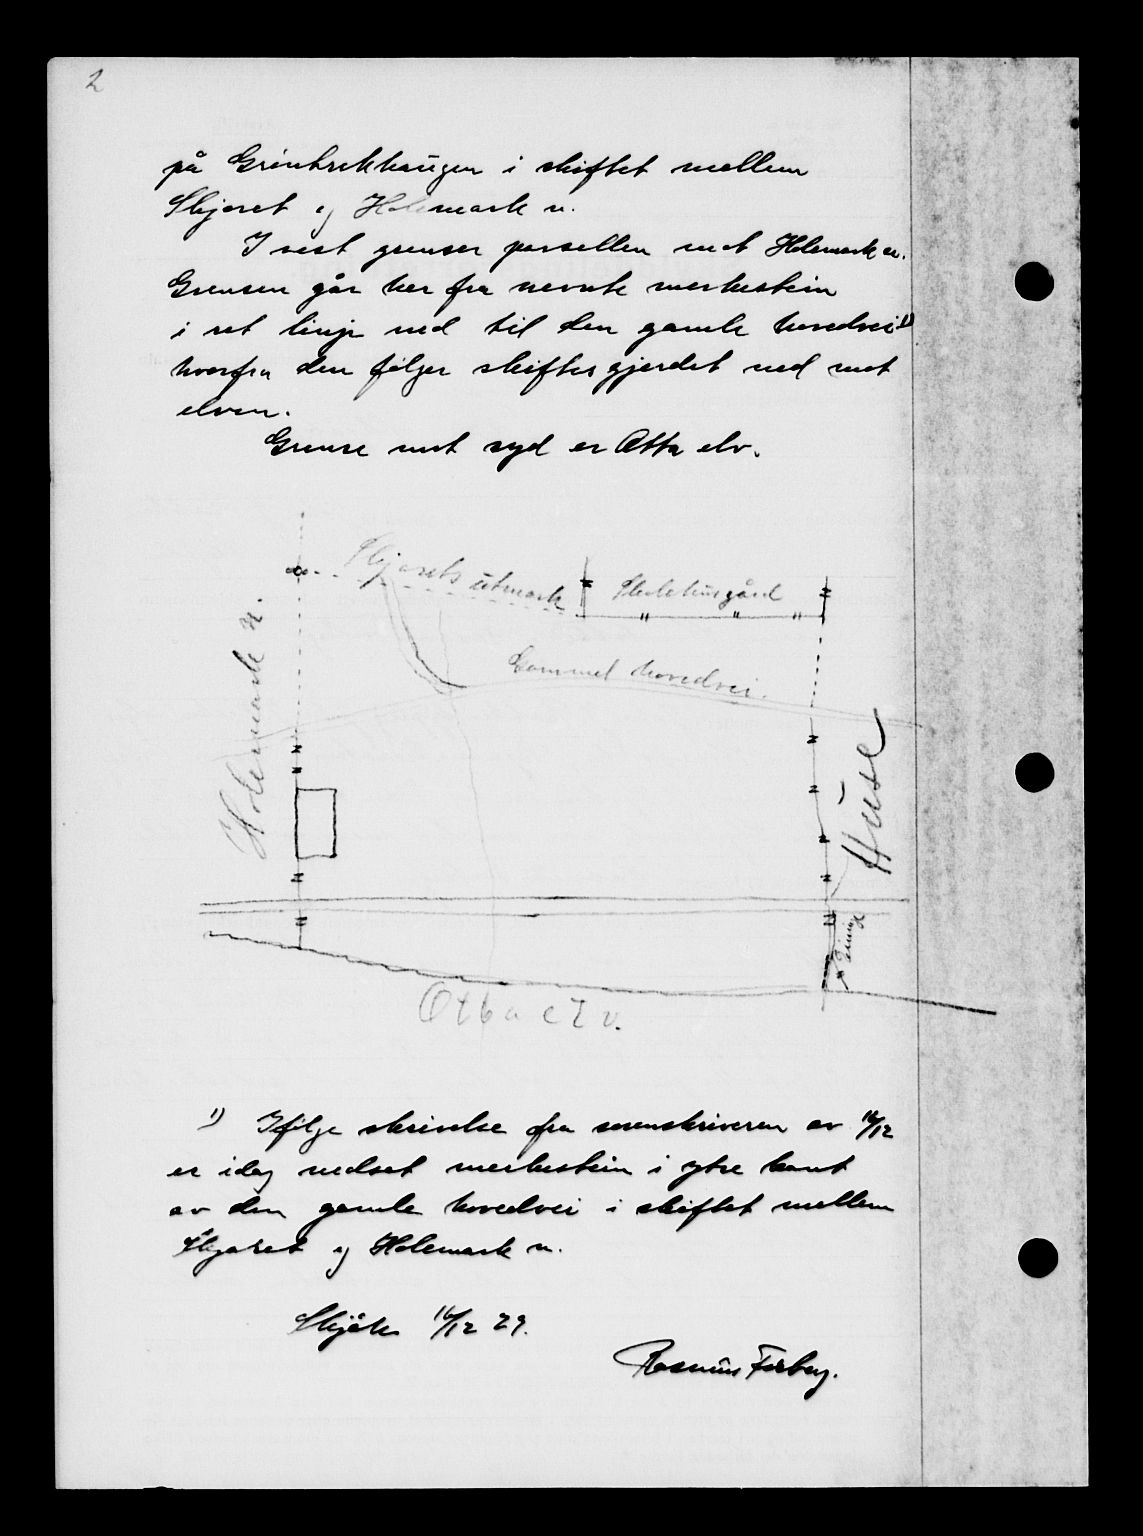 2
på i skiftet mellem
Skjøret og Holemark n.
I vest grenser parsellen mot Holemark n.
Grensen går her fra nevnte merkestein
i ret linje ned til den gamle hovedvei 1)
hvorfra den følger skiftesgjerdet ned mot
elven.
Grense mot syd er Otta elv.
Skjørets utmark
Skulehusgård
Gammel hovedvei.
Holemark n.
Huse
Otta elv.
1) Ifølge skrivelse fra sorenskriveren av 16/12
er idag nedsat merkestein i ytre kant
av den gamle hovedvei i skiftet mellem
Skjøret og Holemark n.
Skjåk 16/12 29.
Rasmus